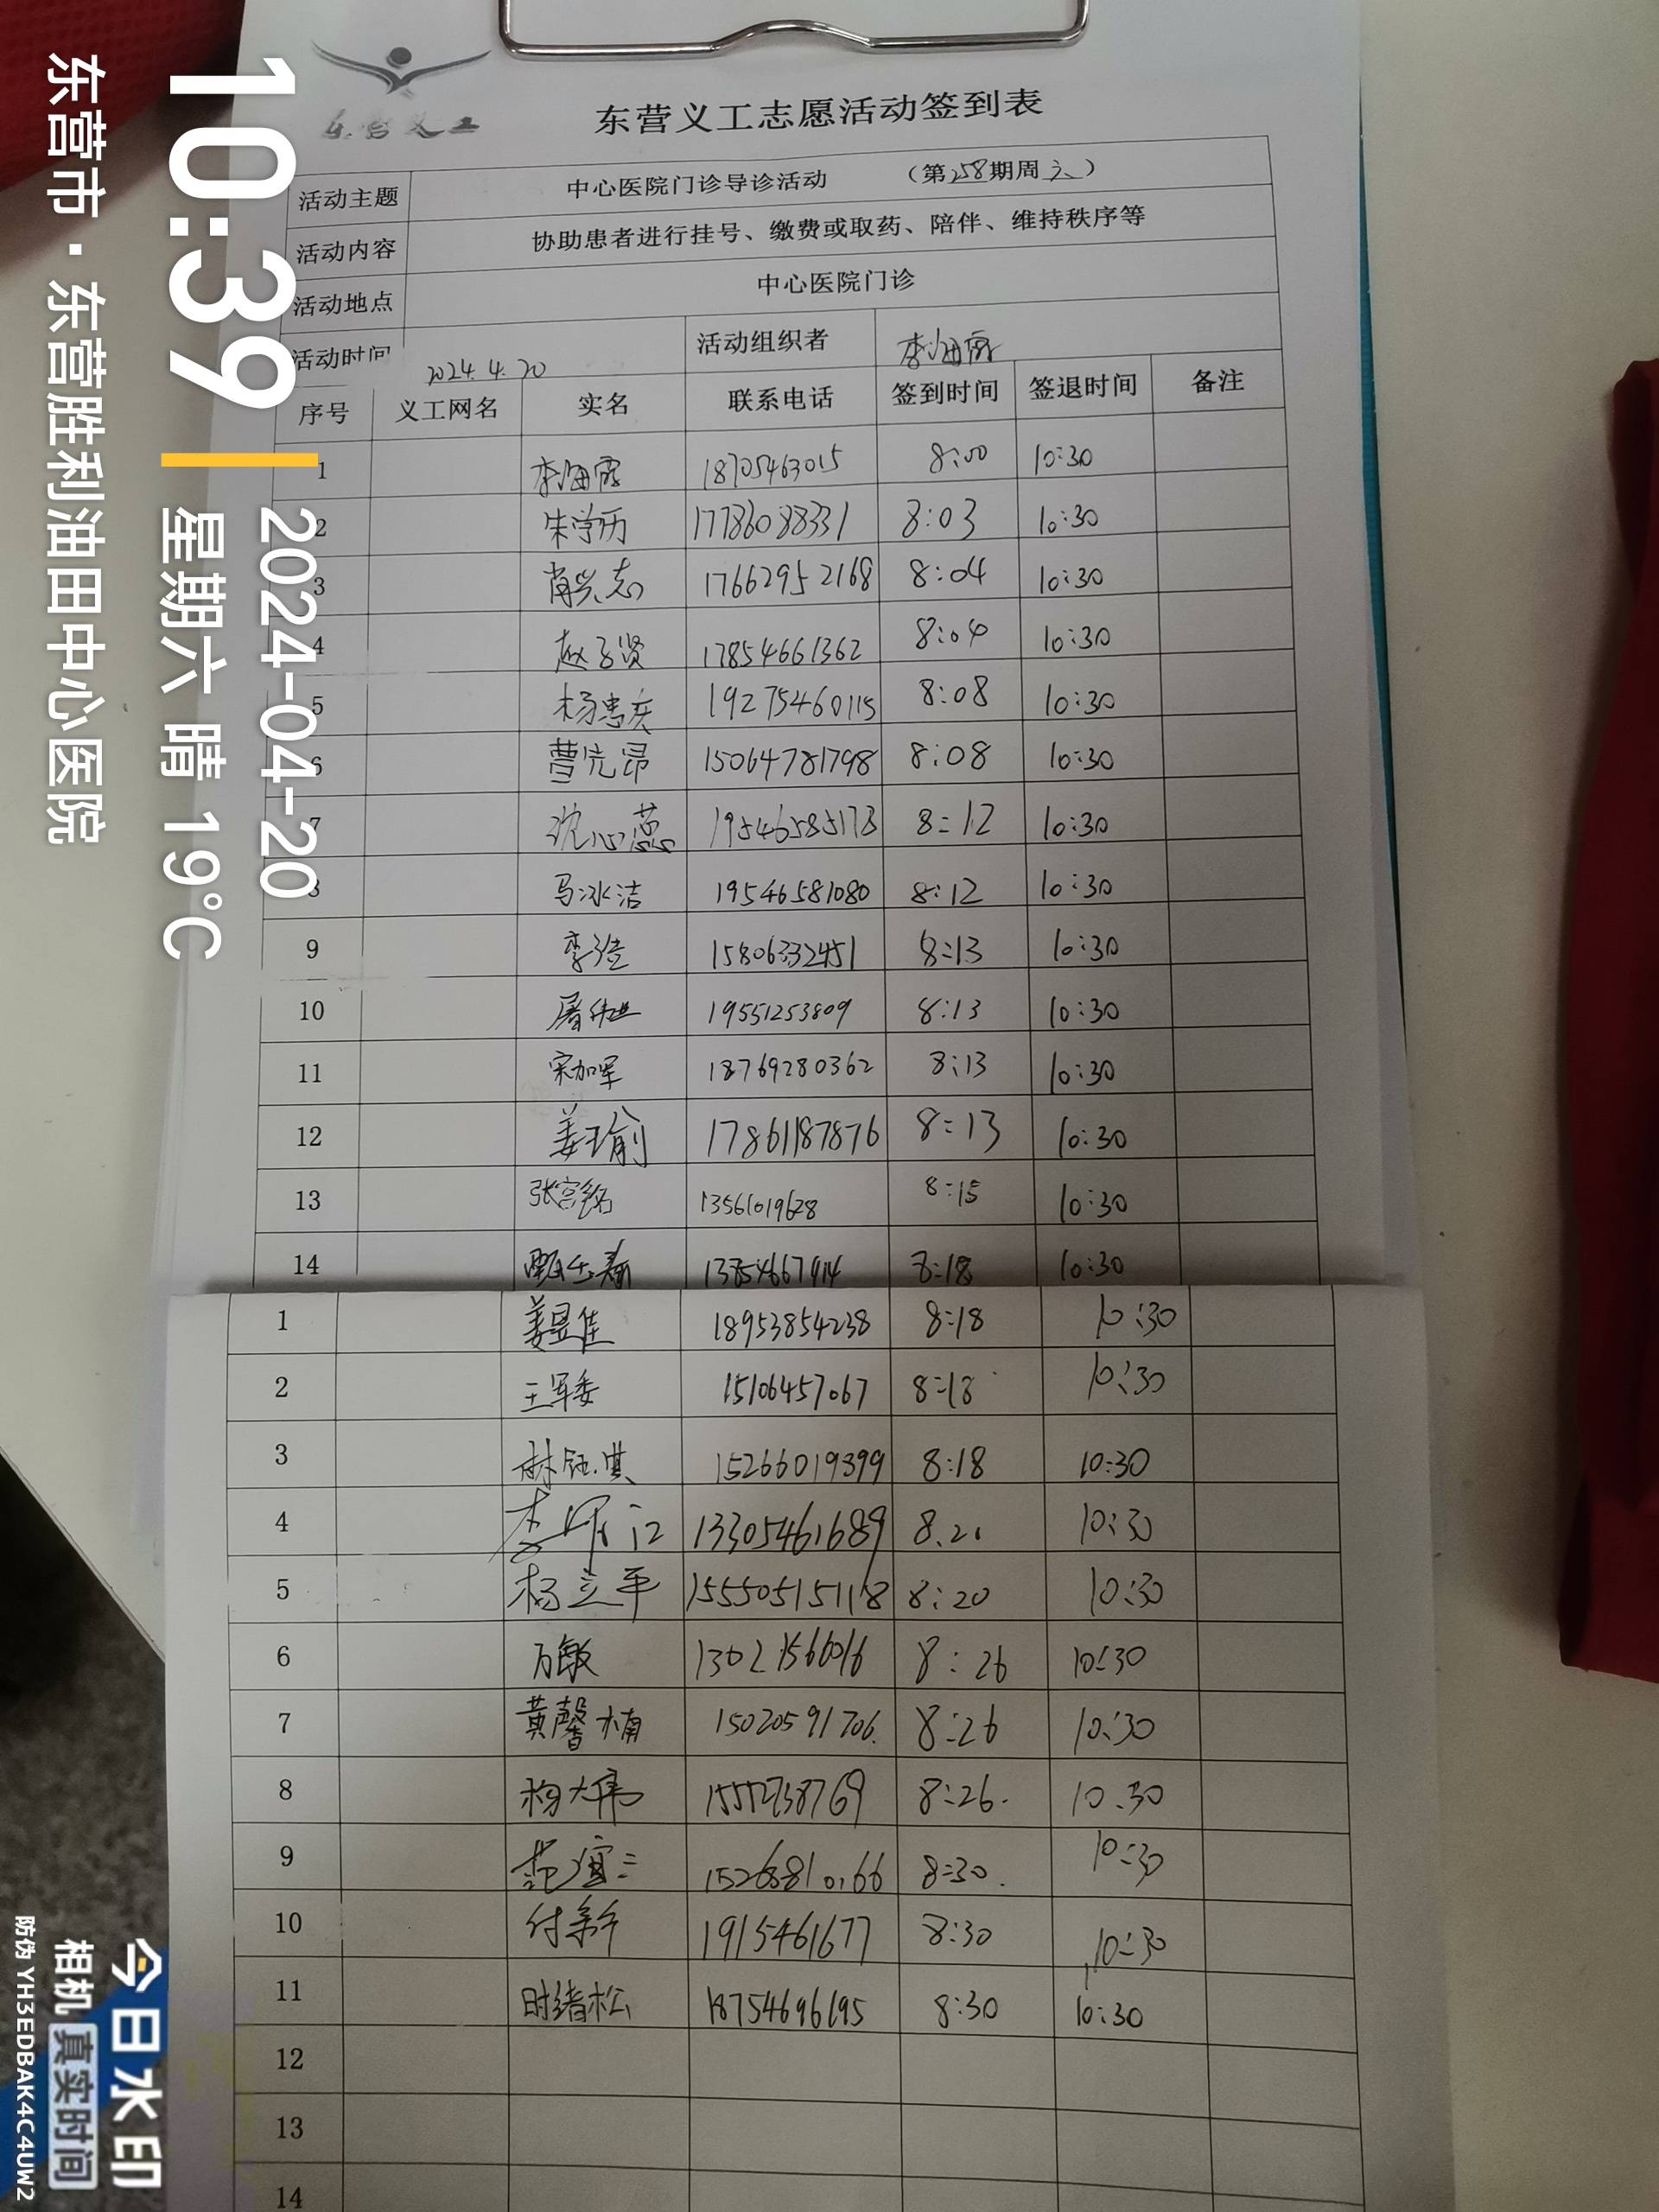 东营义工
东营义工志愿活动签到表
活动主题 中心医院门诊导诊活动 （第258期周六）
活动内容 协助患者进行挂号、缴费或取药、陪伴、维持秩序等
活动地点 中心医院门诊
活动时间 2024.4.20 活动组织者 李海霞
序号 义工网名 实名 联系电话 签到时间 签退时间 备注
1 李海霞 18705463015 8:00 10:30
2 朱学历 17786088331 8:03 10:30
3 肖兴志 17662952168 8:04 10:30
4 赵子贤 17854661362 8:04 10:30
5 19275460115 8:08 10:30
6 15064781798 8:08 10:30
7 沈心蕊 19546585173 8:12 10:30
8 马冰洁 19546581080 8:12 10:30
9 15806332451 8:13 10:30
10 屠伟业 19551253809 8:13 10:30
11 宋加军 18769280362 8:13 10:30
12 姜瑜 17861187876 8:13 10:30
13 张宫铭 13561019628 8:15 10:30
14 13854667914 8:18 10:30
1 姜昱佳 18953854238 8:18 10:30
2 王军委 15106457067 8:18 10:30
3 林钰淇 15266019399 8:18 10:30
4 13305461689 8.20 10:30
5 杨立平 15550515118 8:20 10:30
6 万敏 13021566016 8:26 10:30
7 黄馨楠 15020591706. 8:26 10:30
8 杨大伟 8:26. 10:30
9 8:30. 10:30
10 1915461677 8:30 10:30
11 时绪松 18754696195 8:30 10:30
12
13
14
10:39
2024-04-20
星期六 晴 19℃
东营市·东营胜利油田中心医院
今日水印
相机 真实时间
防伪 YH3EDBAK4C4UW2